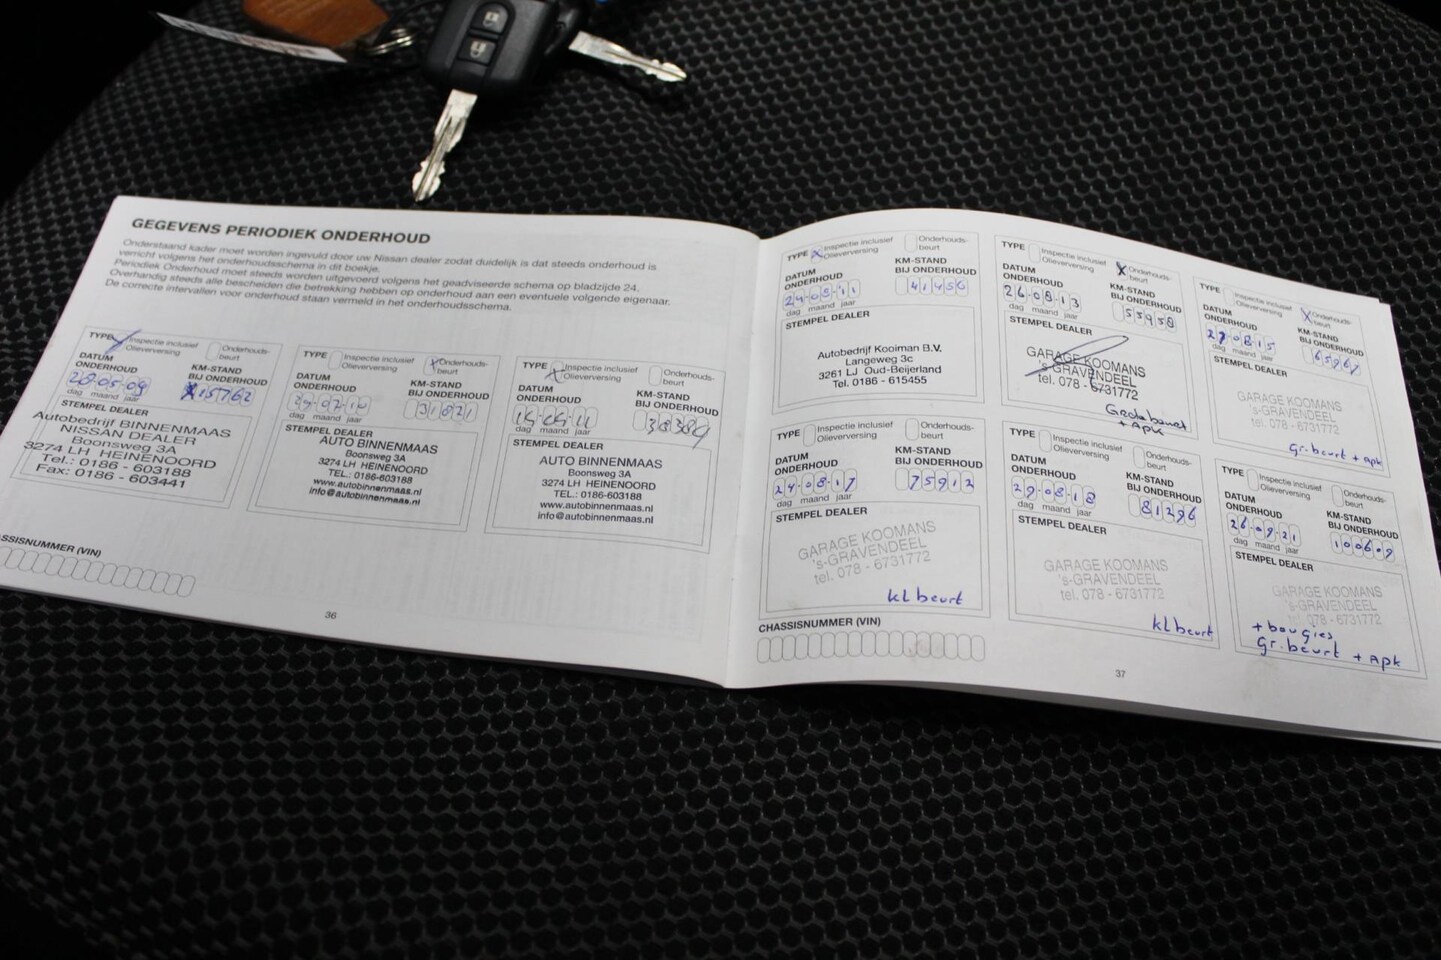 GEGEVENS PERIODIEK ONDERHOUD
Onderstaand kader moet worden ingevuld door uw Nissan dealer zodat duidelijk is dat steeds onderhoud is
verricht volgens het onderhoudsschema in dit boekje.
Periodiek Onderhoud moet steeds worden uitgevoerd volgens het geadviseerde schema op bladzijde 24.
Overhandig steeds alle bescheiden die betrekking hebben op onderhoud aan een eventuele volgende eigenaar.
De correcte intervallen voor onderhoud staan vermeld in het onderhoudsschema.
TYPE Inspectie inclusief Olieverversing Onderhouds-beurt
DATUM ONDERHOUD
KM-STAND BIJ ONDERHOUD
28-05-09
15762
dag maand jaar
STEMPEL DEALER
Autobedrijf BINNENMAAS
NISSAN DEALER
Boonsweg 3A
3274 LH HEINENOORD
Tel.: 0186 - 603188
Fax: 0186 - 603441
TYPE Inspectie inclusief Olieverversing X Onderhouds-beurt
DATUM ONDERHOUD
KM-STAND BIJ ONDERHOUD
31021
dag maand jaar
STEMPEL DEALER
AUTO BINNENMAAS
Boonsweg 3A
3274 LH HEINENOORD
TEL.: 0186-603188
www.autobinnenmaas.nl
info@autobinnenmaas.nl
TYPE X Inspectie inclusief Olieverversing Onderhouds-beurt
DATUM ONDERHOUD
KM-STAND BIJ ONDERHOUD
38389
dag maand jaar
STEMPEL DEALER
AUTO BINNENMAAS
Boonsweg 3A
3274 LH HEINENOORD
TEL.: 0186-603188
www.autobinnenmaas.nl
info@autobinnenmaas.nl
CHASSISNUMMER (VIN)
36
TYPE X Inspectie inclusief Olieverversing Onderhouds-beurt
DATUM ONDERHOUD
KM-STAND BIJ ONDERHOUD
29-08-11
41456
dag maand jaar
STEMPEL DEALER
Autobedrijf Kooiman B.V.
Langeweg 3c
3261 LJ Oud-Beijerland
Tel. 0186 - 615455
TYPE Inspectie inclusief Olieverversing X Onderhouds-beurt
DATUM ONDERHOUD
KM-STAND BIJ ONDERHOUD
26-08-13
55958
dag maand jaar
STEMPEL DEALER
GARAGE KOOMANS
's-GRAVENDEEL
tel. 078 - 6731772
+ APK
TYPE Inspectie inclusief Olieverversing X Onderhouds-beurt
DATUM ONDERHOUD
KM-STAND BIJ ONDERHOUD
27-08-15
65967
dag maand jaar
STEMPEL DEALER
GARAGE KOOMANS
's-GRAVENDEEL
tel. 078 - 6731772
gr. beurt + apk
TYPE Inspectie inclusief Olieverversing Onderhouds-beurt
DATUM ONDERHOUD
KM-STAND BIJ ONDERHOUD
24-08-17
75912
dag maand jaar
STEMPEL DEALER
GARAGE KOOMANS
's-GRAVENDEEL
tel. 078 - 6731772
kl beurt
TYPE Inspectie inclusief Olieverversing Onderhouds-beurt
DATUM ONDERHOUD
KM-STAND BIJ ONDERHOUD
29-08-18
81296
dag maand jaar
STEMPEL DEALER
GARAGE KOOMANS
's-GRAVENDEEL
tel. 078 - 6731772
kl beurt
TYPE Inspectie inclusief Olieverversing Onderhouds-beurt
DATUM ONDERHOUD
KM-STAND BIJ ONDERHOUD
26-09-21
100609
dag maand jaar
STEMPEL DEALER
GARAGE KOOMANS
's-GRAVENDEEL
tel. 078 - 6731772
+ bougies
Gr. beurt + APK
CHASSISNUMMER (VIN)
37